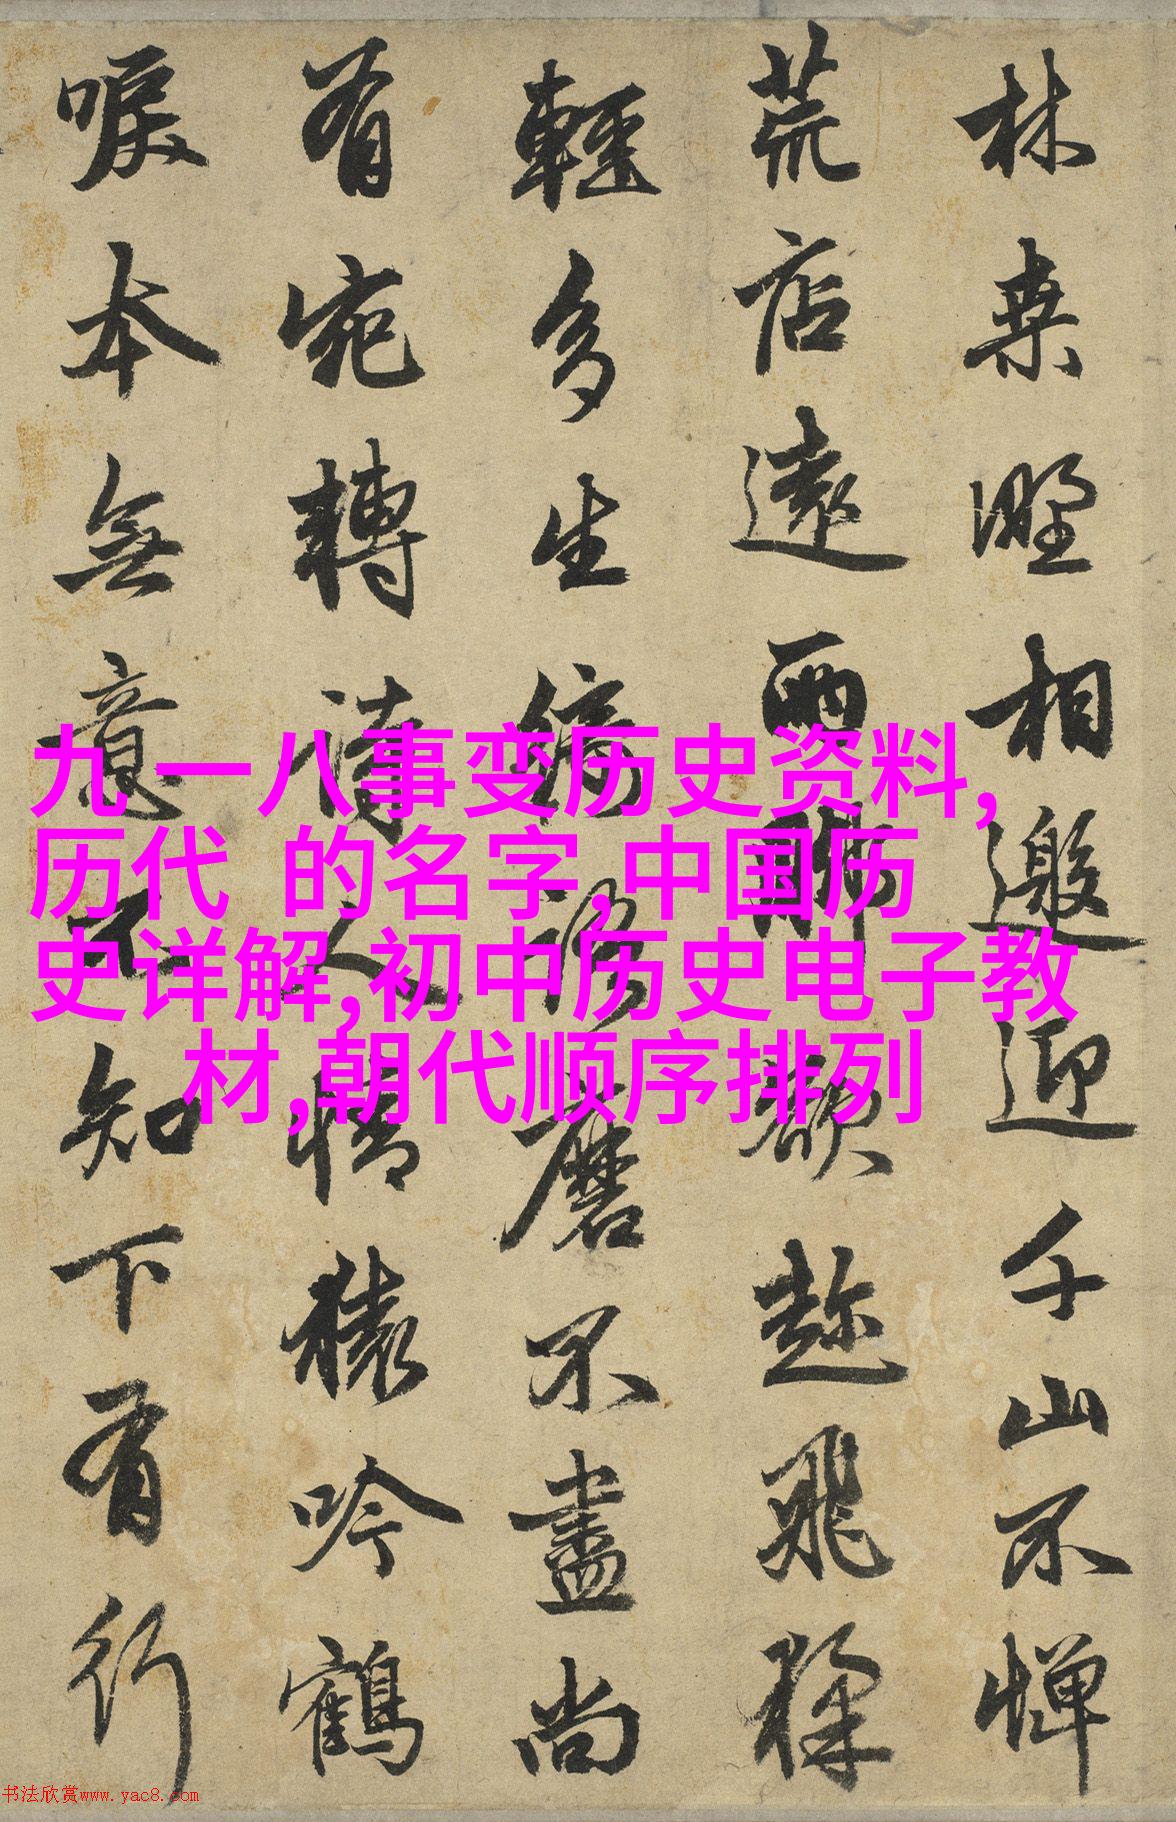 林桒野相邀迎千山不惮
荒店遠兩脚欲趂飛猱
輕多生綺語磨不盡尚
有宛轉詩人情猿吟鶴
唳本無意不知下有行
九一八事变历史资料,
历代 的名字,中国历
史详解,初中历史电子教
材,朝代顺序排列
书法欣赏www.yac8.com